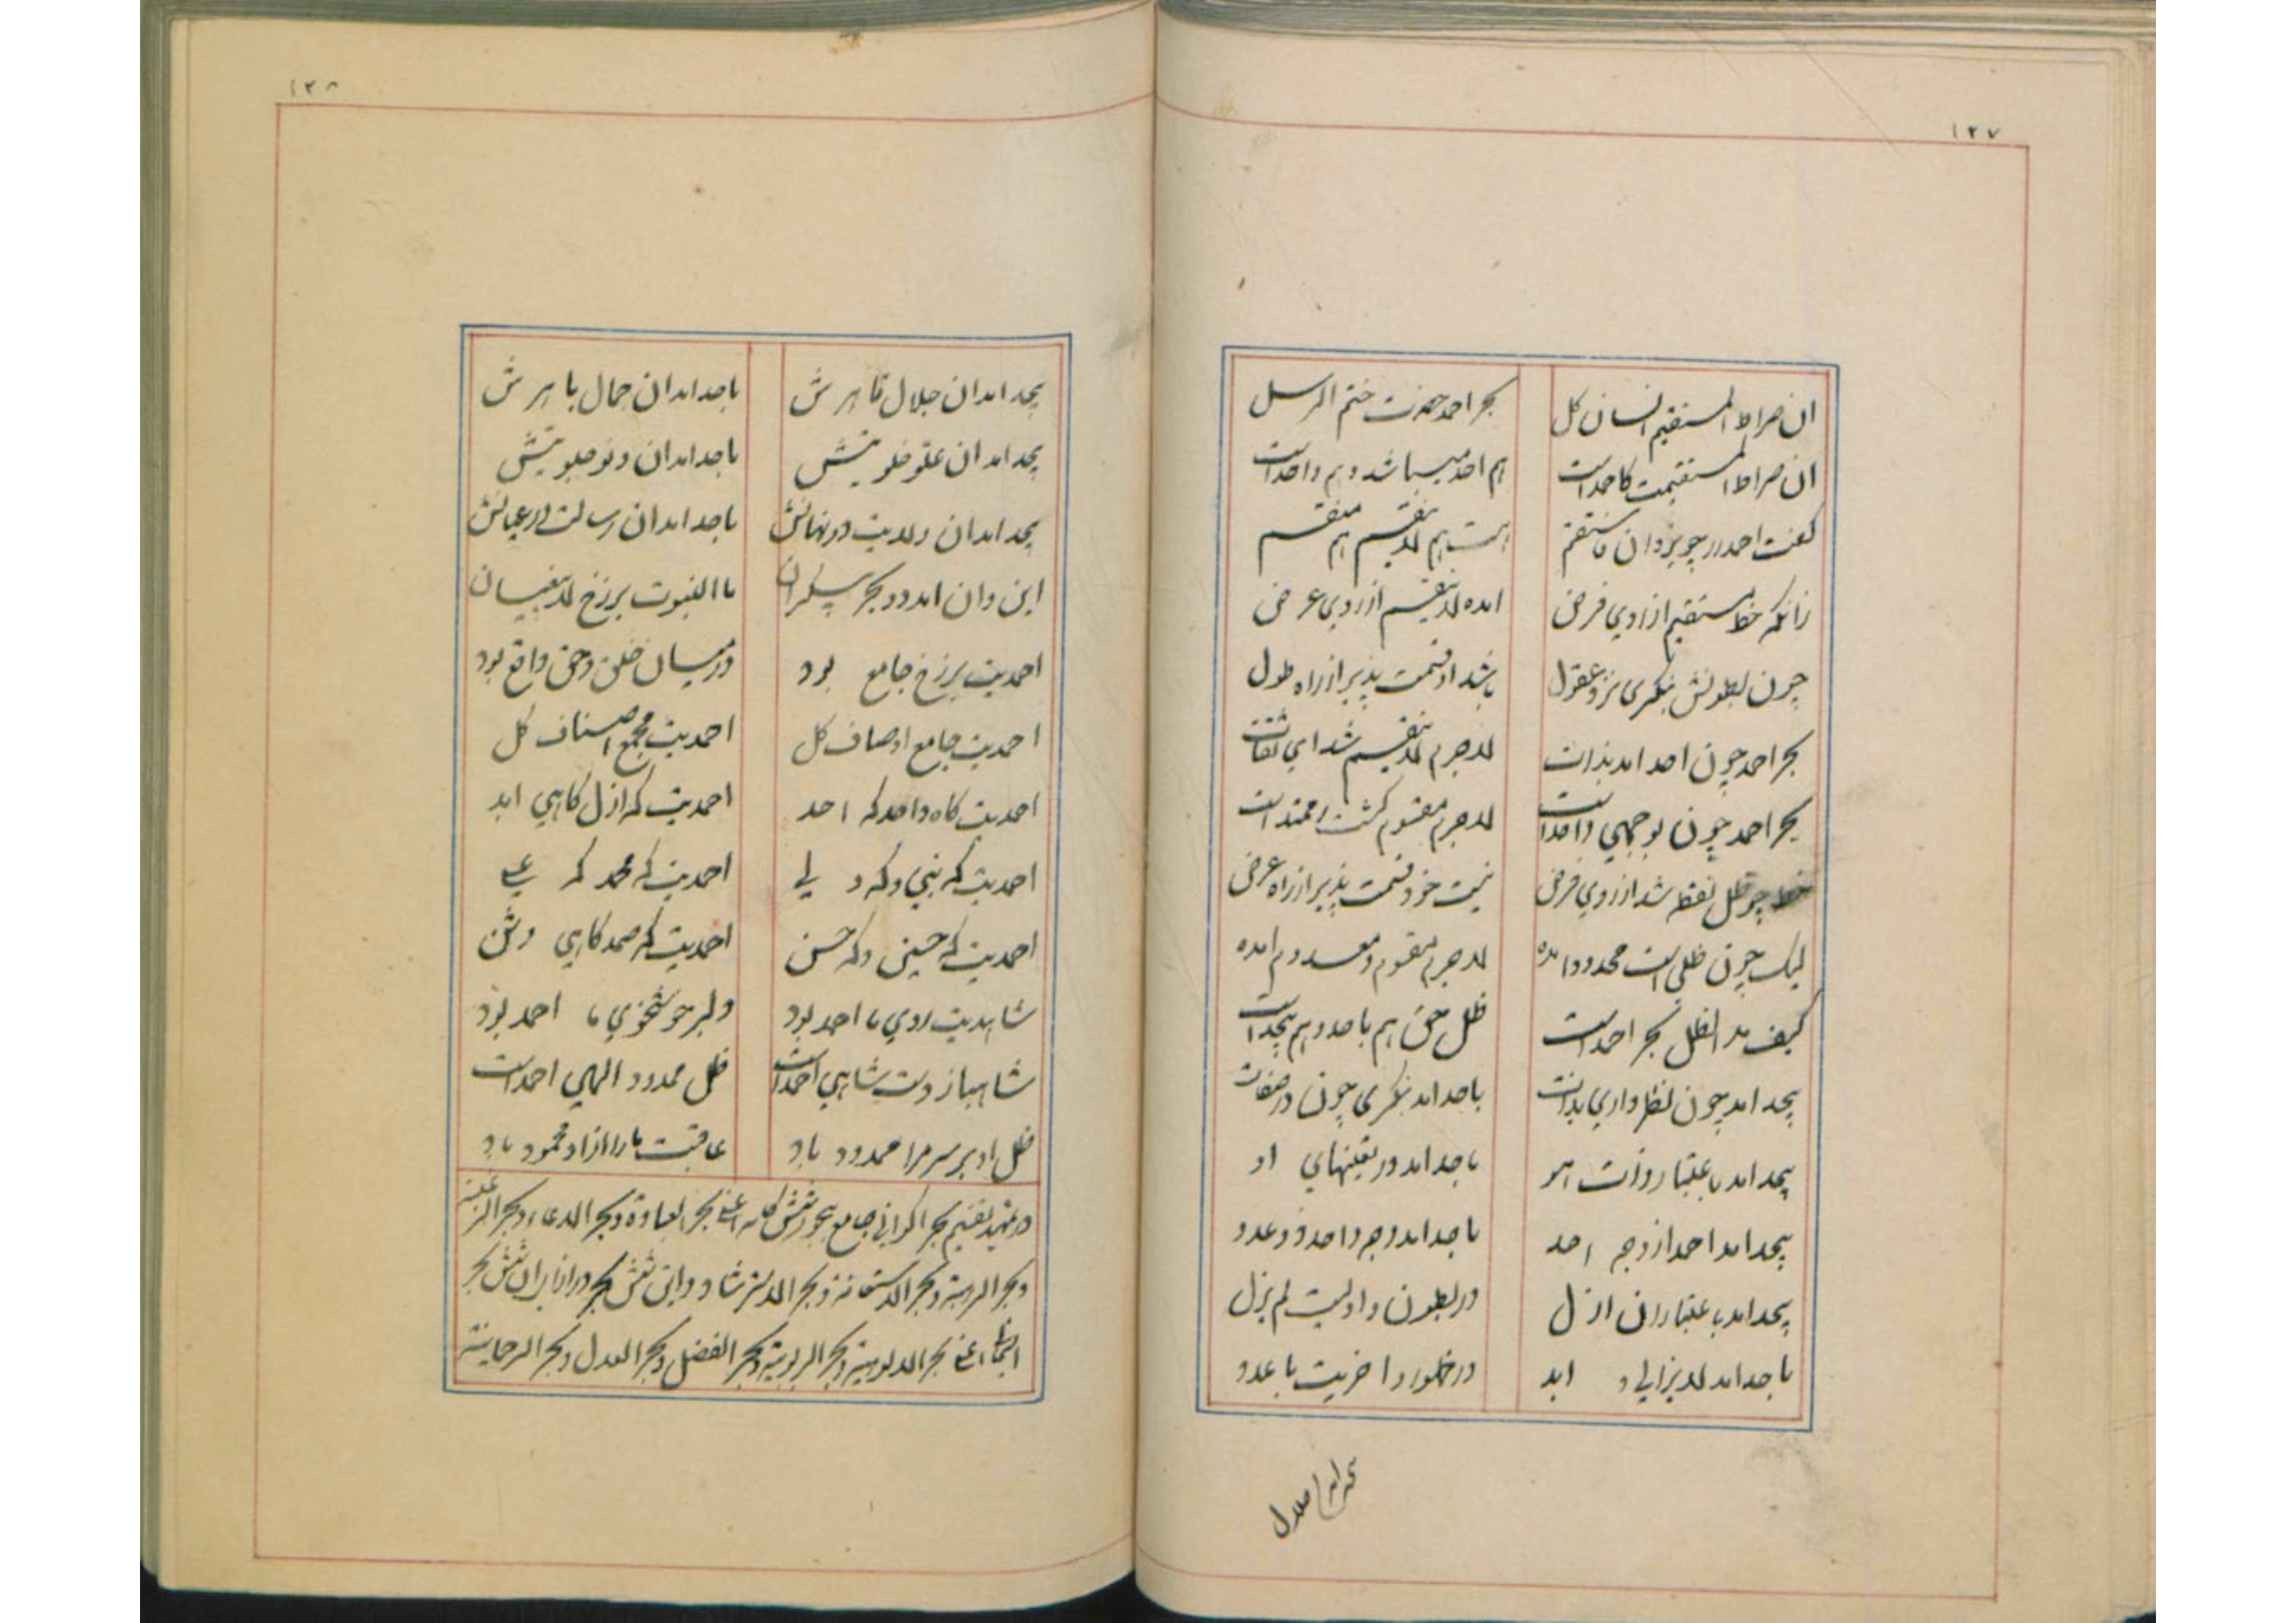 ۱۲۷
ان صراط المستقیم انسان کل بحر احمد حضرت ختم الرسل
ان صراط المستقیمت کاحمداست هم احد میباشد و هم واحداست
گفت احمد رر چو یزدان فاستقم هست هم لاینقسم هم منقسم
زانکه خط مستقیم از روی فرض امده لاینقسم از روی عرض
چون بطولش بنگری نزد عقول باشد او قسمت پذیر از راه طول
بحر احمد چون احد امد بذات لاجرم لاینقسم شد ای ثقات
بحر احمد چون بوجهی واحداست لاجرم مقسوم کشت و ممتداست
خط چو ظل نقطه شد از روی فرض نیست خود قسمت پذیر از راه عرض
لیک چون ظلی است محدود امده لاجرم مقسوم و معدوم امده
کیف مد الظل بحر احمداست ظل حق هم باحد و هم بیحداست
بیحد امد چون نظر داری بذات باحد امد بنگری چون در صفات
بیحد امد باعتبار ذات هو باحد امد در تعینهای او
بیحد امد احمد از وجه احد باحد امد وجه واحد ذو عدد
بیحد امد باعتبار ان ازل در بطون و اولیت لم یزل
باحد امد لایزالی و ابد در ظهور و اخریت با عدد
بیحد امد ان جلال
۱۲۸
بیحد امد ان جلال قاهرش باحد امد ان جمال باهرش
بیحد امد ان علو خلوتش باحد امد ان دنو جلوتش
بیحد امد ان ولایت در نهانش باحد امد ان رسالت در عیانش
این و ان امد دو بحر بیکران با النبوت برزخ لایبغیان
احمدیت برزخ جامع بود در میان خلق و حق واقع بود
احمدیت جامع اوصاف کل احمدیت مجمع اصناف کل
احمدیت کاه واحد که احد احمدیت که ازل کاهی ابد
احمدیت که نبی و که ولی احمدیت که محمد که علی
احمدیت که حسین و که حسن احمدیت که صمد کاهی وثن
شاهدیت روی ما احمد بود دلبر خوشخوی ما احمد بود
شاهباز دست شاهی احمداست ظل ممدود الهی احمداست
ظل او بر سر مرا ممدود باد عاقبت ما را از او محمود باد
در تمهید تقسیم بحر اکوانی جامع بحور شش کانه اعنی بحر العبادة و بحر الدعاء و بحر الرغبة
و بحر الرهبة و بحر الاستعانة و بحر الاسترشاد و این شش بحر در ازا ان شش بحر
اعنی بحر الالوهیة و بحر الربوبیة و بحر الفضل و بحر العدل و بحر الرحمانیة